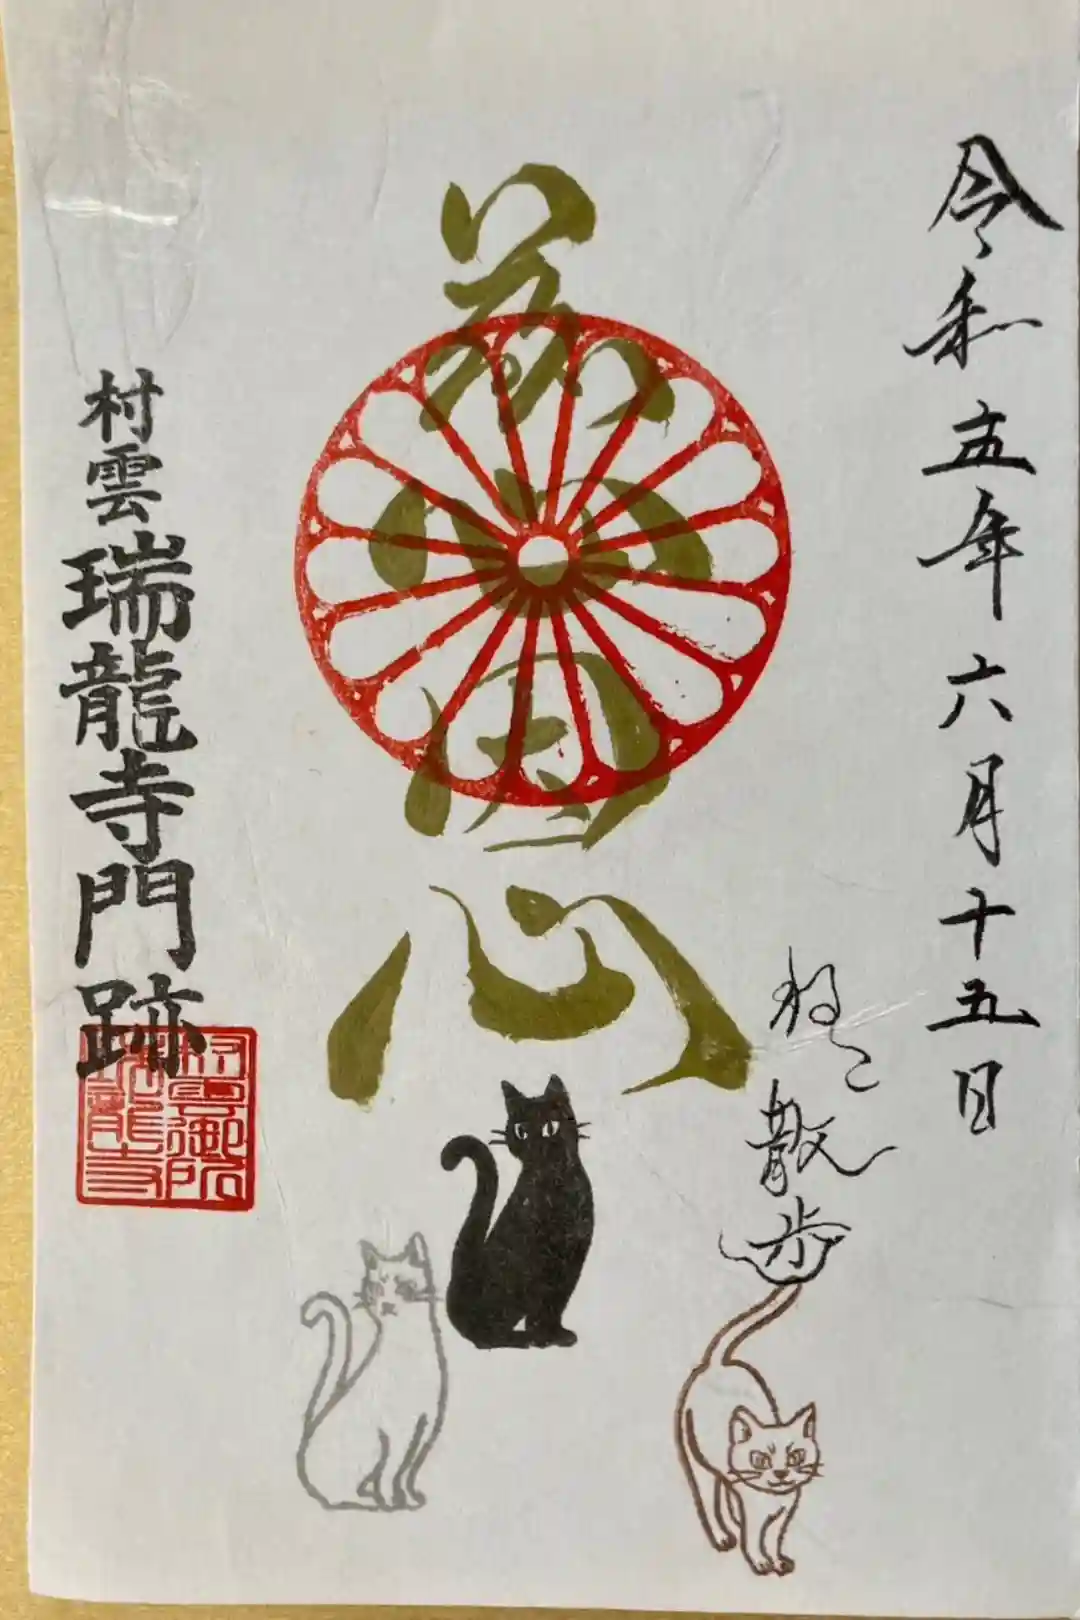 令和五年六月十五日
ねこ
散歩
慈恩
村雲瑞龍寺門跡
村雲御所
瑞龍寺